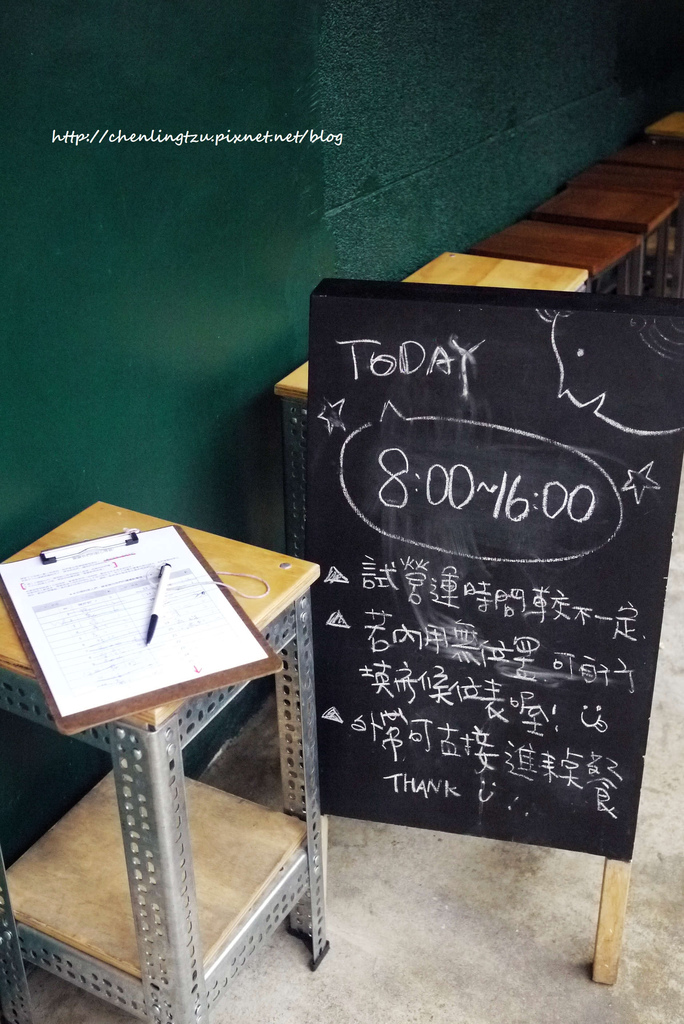 http://chenlingtzu.pixnet.net/blog
TODAY
8:00~16:00
試營運時間較不一定.
若內用無位置可自行
填寫候位表喔!
外帶可直接進來點餐
THANK